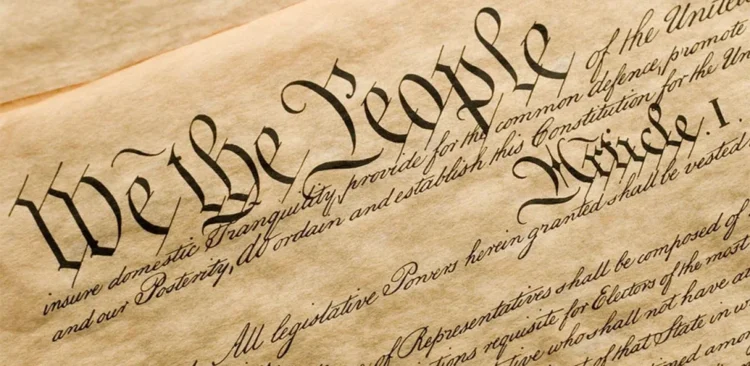 We the People of the United
insure domestic Tranquility, provide for the common defence, promote
and our Posterity, do ordain and establish this Constitution for the Un
Article. I.
All legislative Powers herein granted shall be vested
of Representatives shall be composed of
tions requisite for Electors of the most
tive who shall not have a
t of that State in w